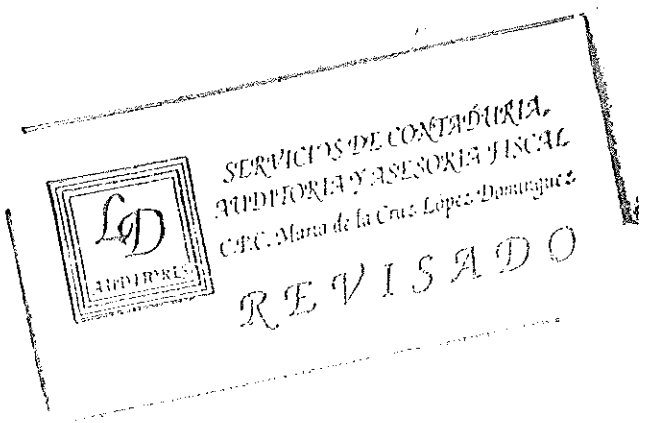 LD
AUDITORES
SERVICIOS DE CONTADURIA,
AUDITORIA Y ASESORIA FISCAL
C.P.C. Maria de la Cruz López Domínguez
REVISADO